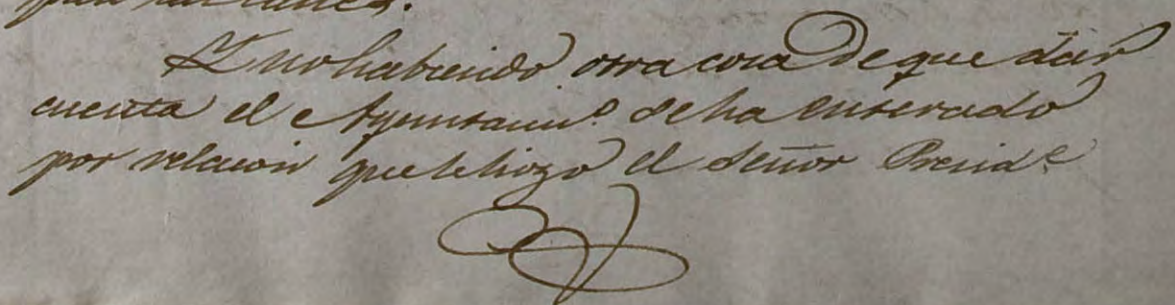 Y no habiendo otra cosa de que dar
cuenta el Ayuntam.º se ha enterado
por relacion que le hizo el Señor Presid.e